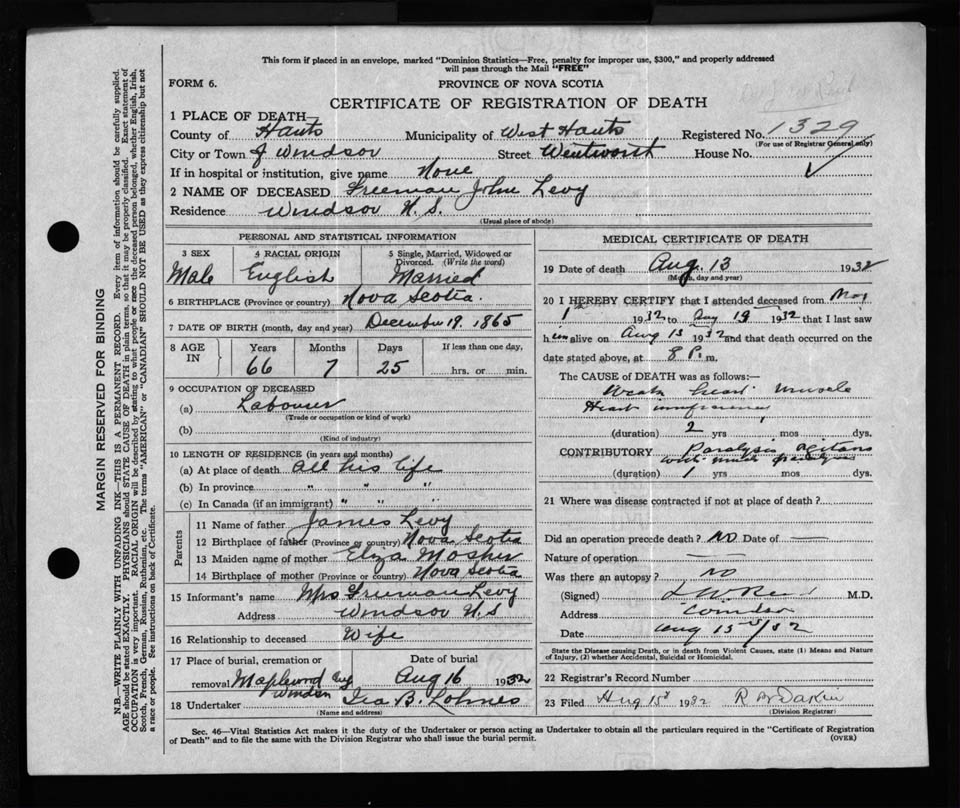 This form if placed in an envelope, marked "Dominion Statistics—Free, penalty for improper use, $300," and properly addressed
will pass through the Mail "FREE"
FORM 6.
PROVINCE OF NOVA SCOTIA
CERTIFICATE OF REGISTRATION OF DEATH
1 PLACE OF DEATH
County of Hants Municipality of West Hants Registered No. 1329
(For use of Registrar General only)
City or Town of Windsor Street Wentworth House No.
If in hospital or institution, give name None
2 NAME OF DECEASED Freeman John Levy
Residence Windsor N.S.
(Usual place of abode)
PERSONAL AND STATISTICAL INFORMATION
3 SEX 4 RACIAL ORIGIN 5 Single, Married, Widowed or
Divorced. (Write the word)
Male English Married
6 BIRTHPLACE (Province or country) Nova Scotia.
7 DATE OF BIRTH (month, day and year) December 19. 1865
8 AGE IN Years Months Days If less than one day,
66 7 25 hrs. or min.
9 OCCUPATION OF DECEASED
(a) Labourer
(Trade or occupation or kind of work)
(b)
(Kind of industry)
10 LENGTH OF RESIDENCE (in years and months)
(a) At place of death all his life
(b) In province " " "
(c) In Canada (if an immigrant) " " "
Parents
11 Name of father James Levy
12 Birthplace of father (Province or country) Nova Scotia
13 Maiden name of mother Eliza Mosher
14 Birthplace of mother (Province or country) Nova Scotia
15 Informant's name Mrs Freeman Levy
Address Windsor N.S
16 Relationship to deceased Wife
17 Place of burial, cremation or Date of burial
removal Maplewood Windsor Aug 16 1932
18 Undertaker Ira B. Lohnes
(Name and address)
MEDICAL CERTIFICATE OF DEATH
19 Date of death Aug. 13 1932
(Month, day and year)
20 I HEREBY CERTIFY that I attended deceased from May
1st 1932 to Aug 13 1932 that I last saw
him alive on Aug 13 1932 and that death occurred on the
date stated above, at 8 P. m.
The CAUSE of DEATH was as follows:—
Weak heart muscle
Heart
(duration) 2 yrs mos dys.
CONTRIBUTORY Paralysis agitans
(duration) 1 yrs mos dys.
21 Where was disease contracted if not at place of death?
Did an operation precede death? No Date of —
Nature of operation —
Was there an autopsy? No
(Signed) M.D.
Address Windsor
Date Aug 15th/32
State the Disease causing Death, or in death from Violent Causes, state (1) Means and Nature
of Injury, (2) whether Accidental, Suicidal or Homicidal.
22 Registrar's Record Number
23 Filed Aug 15th 1932
(Division Registrar)
Sec. 46—Vital Statistics Act makes it the duty of the Undertaker or person acting as Undertaker to obtain all the particulars required in the "Certificate of Registration
of Death" and to file the same with the Division Registrar who shall issue the burial permit. (OVER)
MARGIN RESERVED FOR BINDING
N.B.—WRITE PLAINLY WITH UNFADING INK—THIS IS A PERMANENT RECORD. Every item of information should be carefully supplied.
AGE should be stated EXACTLY. PHYSICIANS should STATE CAUSE OF DEATH in plain terms, so that it may be properly classified. Exact statement of
OCCUPATION is very important. RACIAL ORIGIN will be described by stating to what people or race the deceased person belonged, whether English, Irish,
Scotch, French, German, Russian, Ruthenian, etc. The terms "AMERICAN" or "CANADIAN" SHOULD NOT BE USED as they express citizenship but not
a race or people. See instructions on back of Certificate.